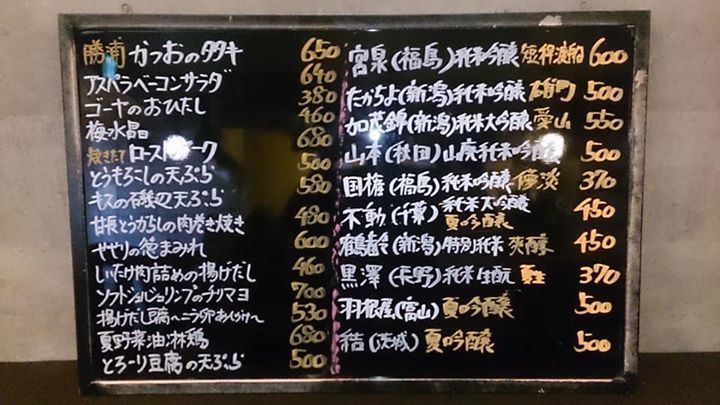 勝浦 かつおのタタキ 650
アスパラベーコンサラダ 640
ゴーヤのおひたし 380
梅水晶 460
焼きたて ローストポーク 680
とうもろこしの天ぷら 500
キスの磯辺天ぷら 580
甘長とうがらしの肉巻き焼き 480
ヤゲンの徳まみれ 600
しいたけ肉詰めの揚げだし 460
ソフトシェルシュリンプのチリマヨ 700
揚げだし豆腐〜ニラ卵あんかけ〜 530
夏野菜油淋鶏 680
とろーり豆腐の天ぷら 500
宮泉(福島)純米吟醸 600
たかちよ(新潟)純米吟醸 雄町 500
加茂錦(新潟)純米大吟醸 愛山 550
山本(秋田)山廃純米吟醸 500
国権(福島)純米吟醸 370
不動(千葉)純米大吟醸 夏吟醸 450
鶴齢(新潟)特別純米 爽醇 450
黒澤(長野)純米生酛 夏生 370
羽根屋(富山)夏吟醸 500
結(茨城)夏吟醸 500